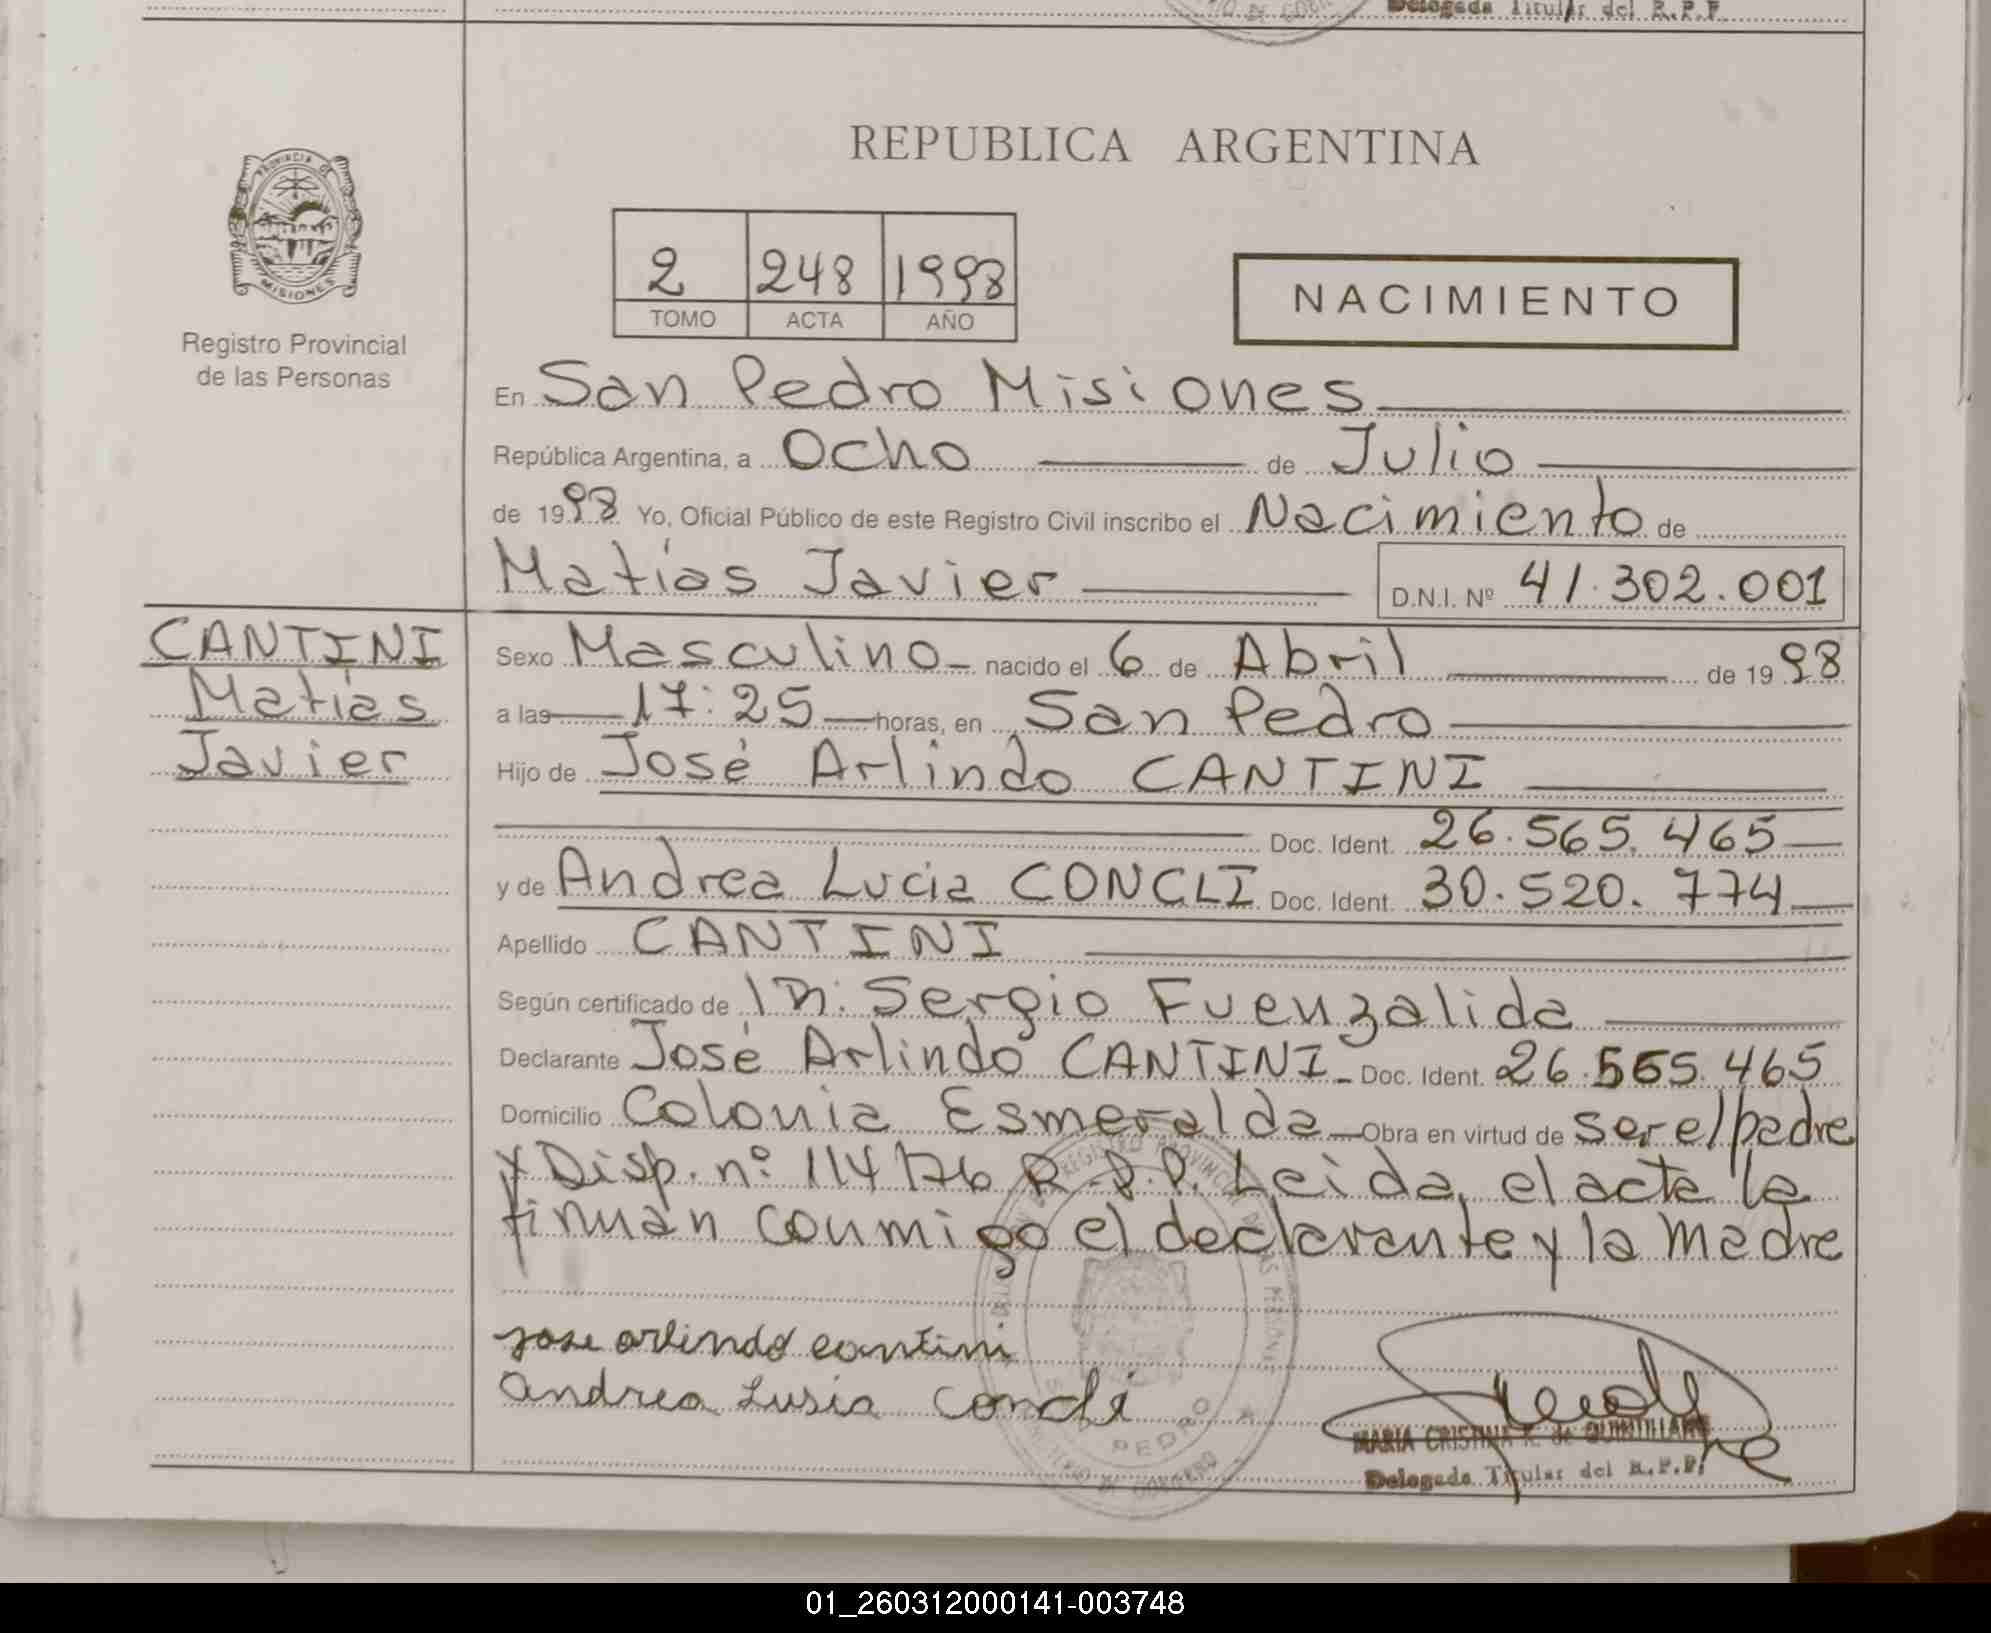 Delegada Titular del R.P.P.
REPUBLICA ARGENTINA
PROVINCIA DE
MISIONES
Registro Provincial
de las Personas
2 248 1998
TOMO ACTA AÑO
NACIMIENTO
En San Pedro Misiones
República Argentina, a Ocho de Julio
de 1998 Yo, Oficial Público de este Registro Civil inscribo el Nacimiento de
Matías Javier D.N.I. Nº 41.302.001
CANTINI
Matías
Javier
Sexo Masculino nacido el 6 de Abril de 1998
a las 17:25 horas, en San Pedro
Hijo de José Arlindo CANTINI
Doc. Ident. 26.565.465
y de Andrea Lucia CONCLI Doc. Ident. 30.520.774
Apellido CANTINI
Según certificado de Sergio Fuenzalida
Declarante José Arlindo CANTINI Doc. Ident. 26.565.465
Domicilio Colonia Esmeralda Obra en virtud de ser el padre
y Disp. nº 114/76 R.P.P. Leida el acta la
firman conmigo el declarante y la madre
jose arlindo cantini
andrea Lusia Concli
PEDRO
MARIA CRISTINA R. de QUINTILLAN
Delegada Titular del R.P.P.
01_260312000141-003748